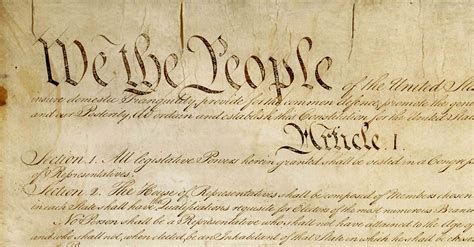 We the People of the United States
insure domestic Tranquility, provide for the common defence, promote the gen
and our Posterity, do ordain and establish this Constitution for the United States
Article. I.
Section. 1. All legislative Powers herein granted shall be vested in a Congress
of Representatives.
Section. 2. The House of Representatives shall be composed of Members chosen
in each State shall have Qualifications requisite for Electors of the most numerous Branch
No Person shall be a Representative who shall not have attained to the Age
and who shall not, when elected, be an Inhabitant of that State in which he shall